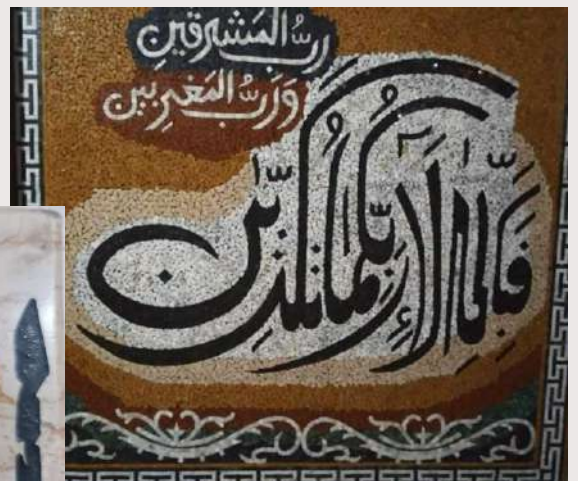 رب المشرقين
ورب المغربين
فبأي آلاء ربكما تكذبان